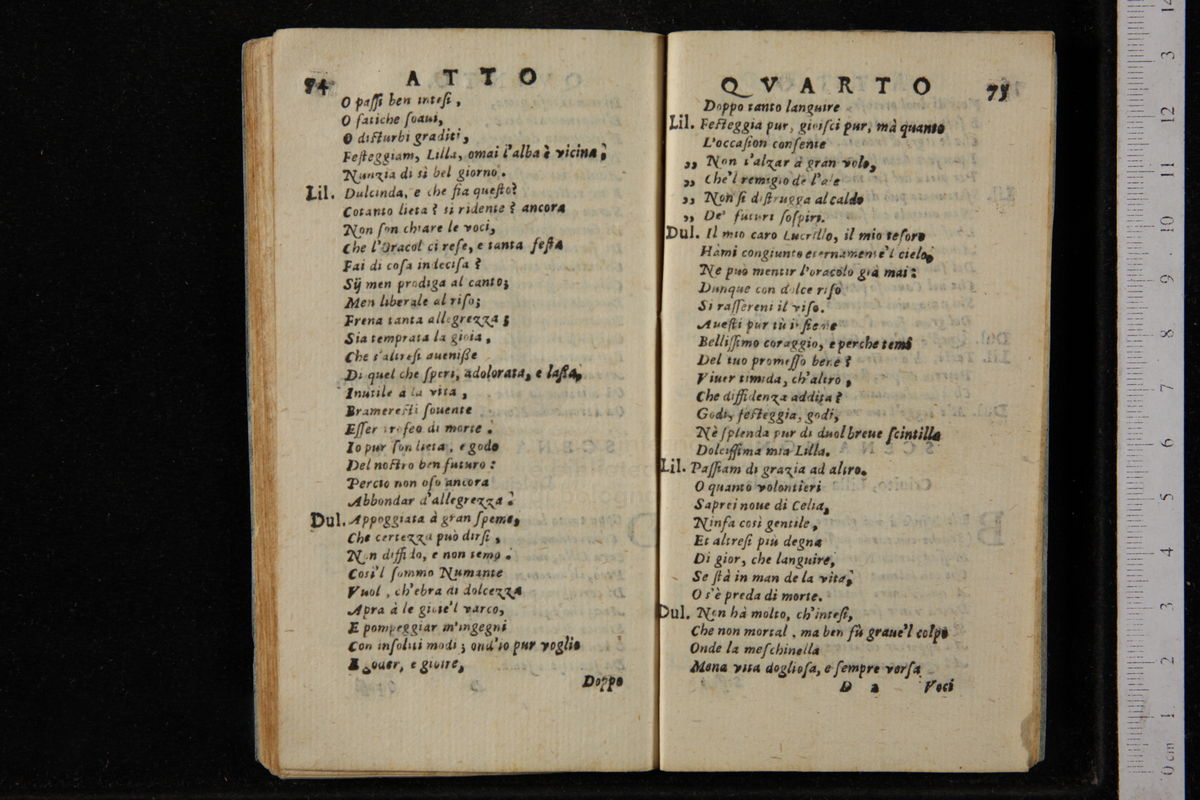 74 ATTO
O passi ben intesi,
O fatiche soaui,
O disturbi graditi,
Festeggiam, Lilla, omai l'alba è vicina,
Nunzia di sì bel giorno.
Lil. Dulcinda, e che fia questo?
Cotanto lieta? si ridente? ancora
Non son chiare le voci,
Che l'Oracol ci rese, e tanta festa
Fai di cosa indecisa?
Sij men prodiga al canto;
Men liberale al riso;
Frena tanta allegrezza;
Sia temprata la gioia,
Che s'altresi auenisse
Di quel che speri, adolorata, e lassa,
Inutile a la vita,
Brameresti souente
Esser trofeo di morte.
Io pur son lieta, e godo
Del nostro ben futuro:
Percio non oso ancora
Abbondar d'allegrezza.
Dul. Appoggiata à gran speme,
Che certezza può dirsi,
Non diffido, e non temo.
Così'l sommo Numante
Vuol, ch'ebra di dolcezza
Apra à le gioie'l varco,
E pompeggiar m'ingegni
Con insoliti modi; ond'io pur voglio
E goder, e gioire,
Doppo
QVARTO 75
Doppo tanto languire
Lil. Festeggia pur, gioisci pur, mà quanto
L'occasion consente
„ Non t'alzar à gran volo,
„ Che'l remigio de l'ale
„ Non si distrugga al caldo
„ De' futuri sospiri.
Dul. Il mio caro Lucrillo, il mio tesoro
Hàmi congiunto eternamente'l cielo,
Ne può mentir l'oracolo già mai:
Dunque con dolce riso
Si rassereni il viso.
Auesti pur tù insieme
Bellissimo coraggio, e perche temi
Del tuo promesso bene?
Viuer timida, ch'altro,
Che diffidenza addita?
Godi, festeggia, godi,
Nè splenda pur di duol breue scintilla
Dolcissima mia Lilla.
Lil. Passiam di grazia ad altro.
O quanto volontieri
Saprei noue di Celia,
Ninfa così gentile,
Et altresi più degna
Di gior, che languire,
Se stà in man de la vita,
O s'è preda di morte.
Dul. Non hà molto, ch'intesi,
Che non mortal, ma ben fù graue'l colpo
Onde la meschinella
Mena vita dogliosa, e sempre versa
D 2 Voci